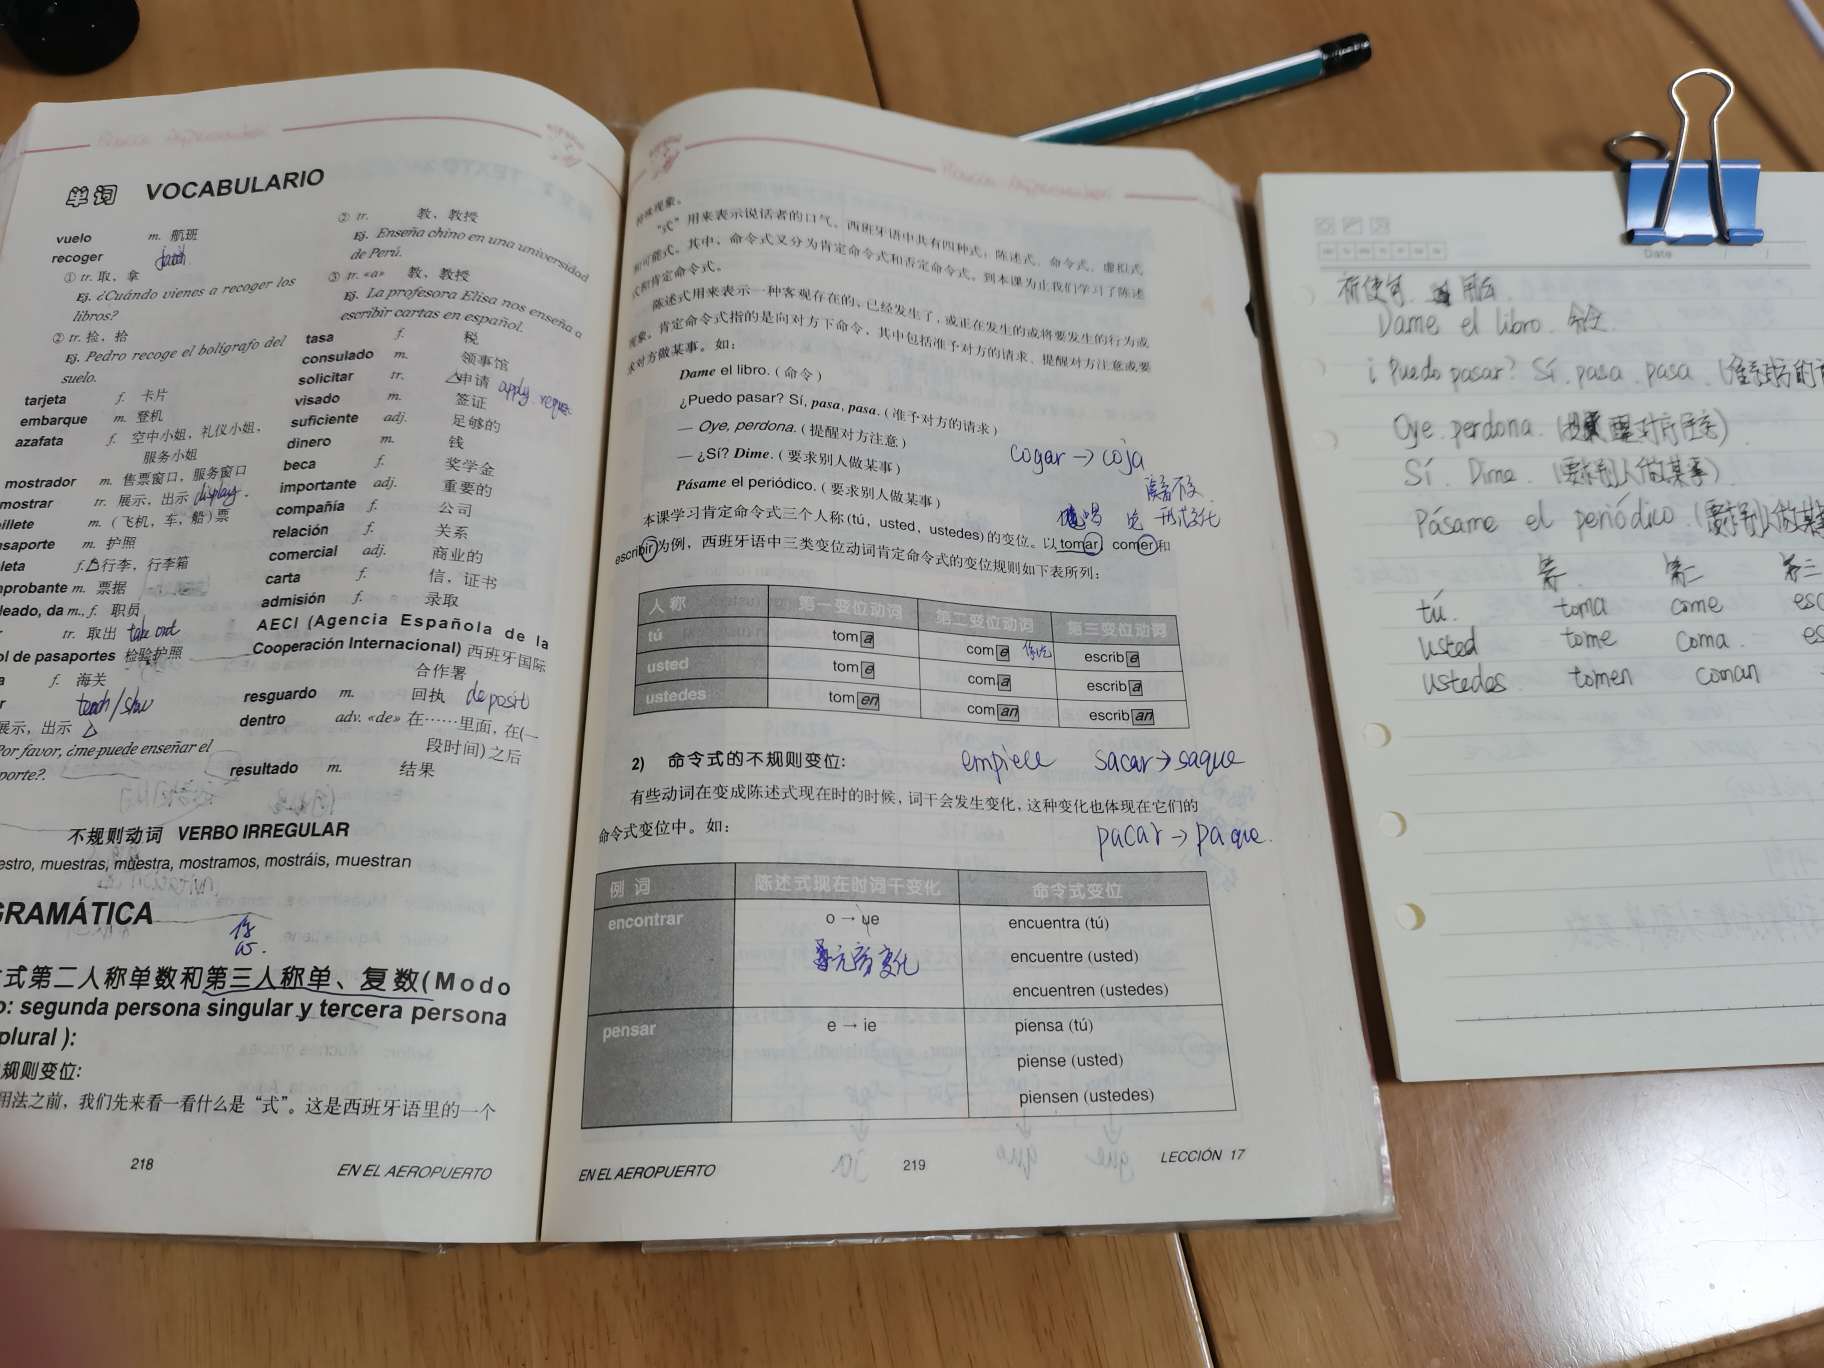 单词 VOCABULARIO
vuelo m. 航班
recoger
① tr. 取，拿
Ej. ¿Cuándo vienes a recoger los
libros?
② tr. 捡，拾
Ej. Pedro recoge el bolígrafo del
suelo.
tarjeta f. 卡片
embarque m. 登机
azafata f. 空中小姐，礼仪小姐，
服务小姐
mostrador m. 售票窗口，服务窗口
mostrar tr. 展示，出示 display.
illete m. (飞机，车，船)票
asaporte m. 护照
leta f. 行李，行李箱
probante m. 票据
leado, da m., f. 职员
tr. 取出 take out
ol de pasaportes 检验护照
a f. 海关
r teach/show
展示，出示
Por favor, ¿me puede enseñar el
porte?.
② tr. 教，教授
Ej. Enseña chino en una universidad
de Perú.
③ tr. «a» 教，教授
Ej. La profesora Elisa nos enseña a
escribir cartas en español.
tasa f. 税
consulado m. 领事馆
solicitar tr. 申请 apply. reque
visado m. 签证
suficiente adj. 足够的
dinero m. 钱
beca f. 奖学金
importante adj. 重要的
compañía f. 公司
relación f. 关系
comercial adj. 商业的
carta f. 信，证书
admisión f. 录取
AECI (Agencia Española de la
Cooperación Internacional) 西班牙国际
合作署
resguardo m. 回执 deposit
dentro adv. «de» 在……里面，在(一
段时间)之后
resultado m. 结果
不规则动词 VERBO IRREGULAR
estro, muestras, muestra, mostramos, mostráis, muestran
GRAMÁTICA
式第二人称单数和第三人称单、复数(Modo
o: segunda persona singular y tercera persona
plural ):
规则变位:
用法之前，我们先来看一看什么是“式”。这是西班牙语里的一个
218
EN EL AEROPUERTO
特殊现象。
“式”用来表示说话者的口气。西班牙语中共有四种式：陈述式、命令式、虚拟式
和可能式。其中，命令式又分为肯定命令式和否定命令式。到本课为止我们学习了陈述
式和肯定命令式。
陈述式用来表示一种客观存在的、已经发生了，或正在发生的或将要发生的行为或
现象。肯定命令式指的是向对方下命令，其中包括准予对方的请求、提醒对方注意或要
求对方做某事。如：
Dame el libro. (命令)
¿Puedo pasar? Sí, pasa, pasa. (准予对方的请求)
— Oye, perdona. (提醒对方注意)
— ¿Sí? Dime. (要求别人做某事)
Pásame el periódico. (要求别人做某事)
cogar → coja
本课学习肯定命令式三个人称(tú, usted, ustedes)的变位。以 tomar, comer 和
escribir 为例，西班牙语中三类变位动词肯定命令式的变位规则如下表所列：
人称 第一变位动词 第二变位动词 第三变位动词
tú toma come escribe
usted tome coma escriba
ustedes tomen coman escriban
2) 命令式的不规则变位:
empiece sacar → saque
有些动词在变成陈述式现在时的时候，词干会发生变化，这种变化也体现在它们的
命令式变位中。如：
pacar → paque.
例词 陈述式现在时词干变化 命令式变位
encontrar o → ue encuentra (tú)
元音变化 encuentre (usted)
encuentren (ustedes)
pensar e → ie piensa (tú)
piense (usted)
piensen (ustedes)
EN EL AEROPUERTO
219
LECCIÓN 17
Date
祈使句 用法
Dame el libro. 命令.
¿Puedo pasar? Sí. pasa. pasa.
Oye. perdona.
Sí. Dime. (要求别人做某事)
Pásame el periódico. (要求别人做某
第一 第二 第三
tú. toma come esc
usted tome coma. es
ustedes. tomen coman